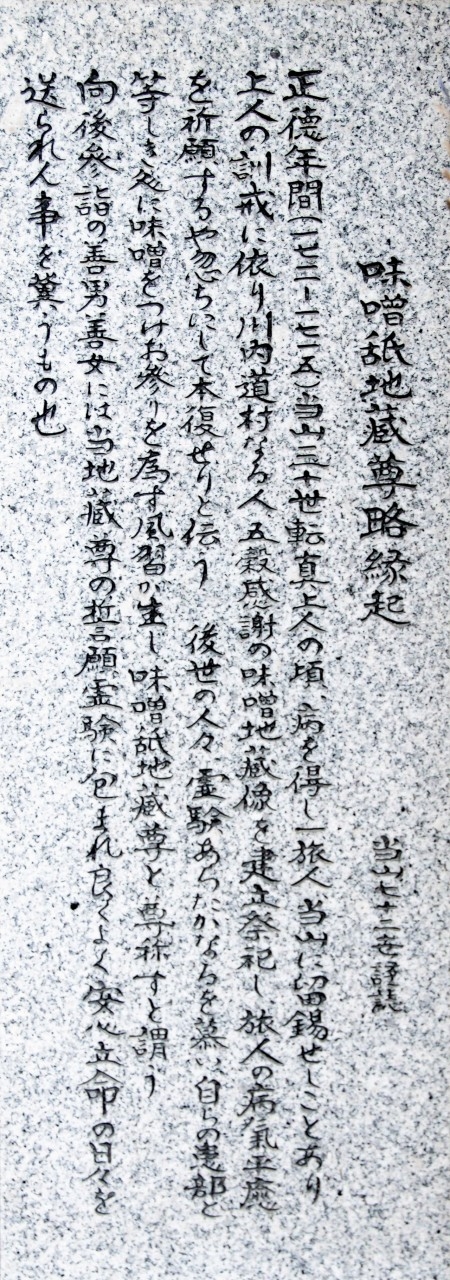 味噌舐地蔵尊略縁起
当山七十三世謹誌
正徳年間（一七一一ー一七一五）当山三十世転真上人の頃、病を得し一旅人当山に留錫せしことあり
上人の訓戒に依り川内道村なる人五穀感謝の味噌地蔵像を建立祭祀し、旅人の病氣平癒
を祈願するや忽ちにして本復せりと伝う　後世の人々、霊験あらたかなるを慕い、自らの患部と
等しき処に味噌をつけお参りを為す風習が生し味噌舐地蔵尊と尊称すと謂う
向後参詣の善男善女には当地蔵尊の誓言願、霊験に包まれ良くよく安心立命の日々を
送られん事を冀うもの也